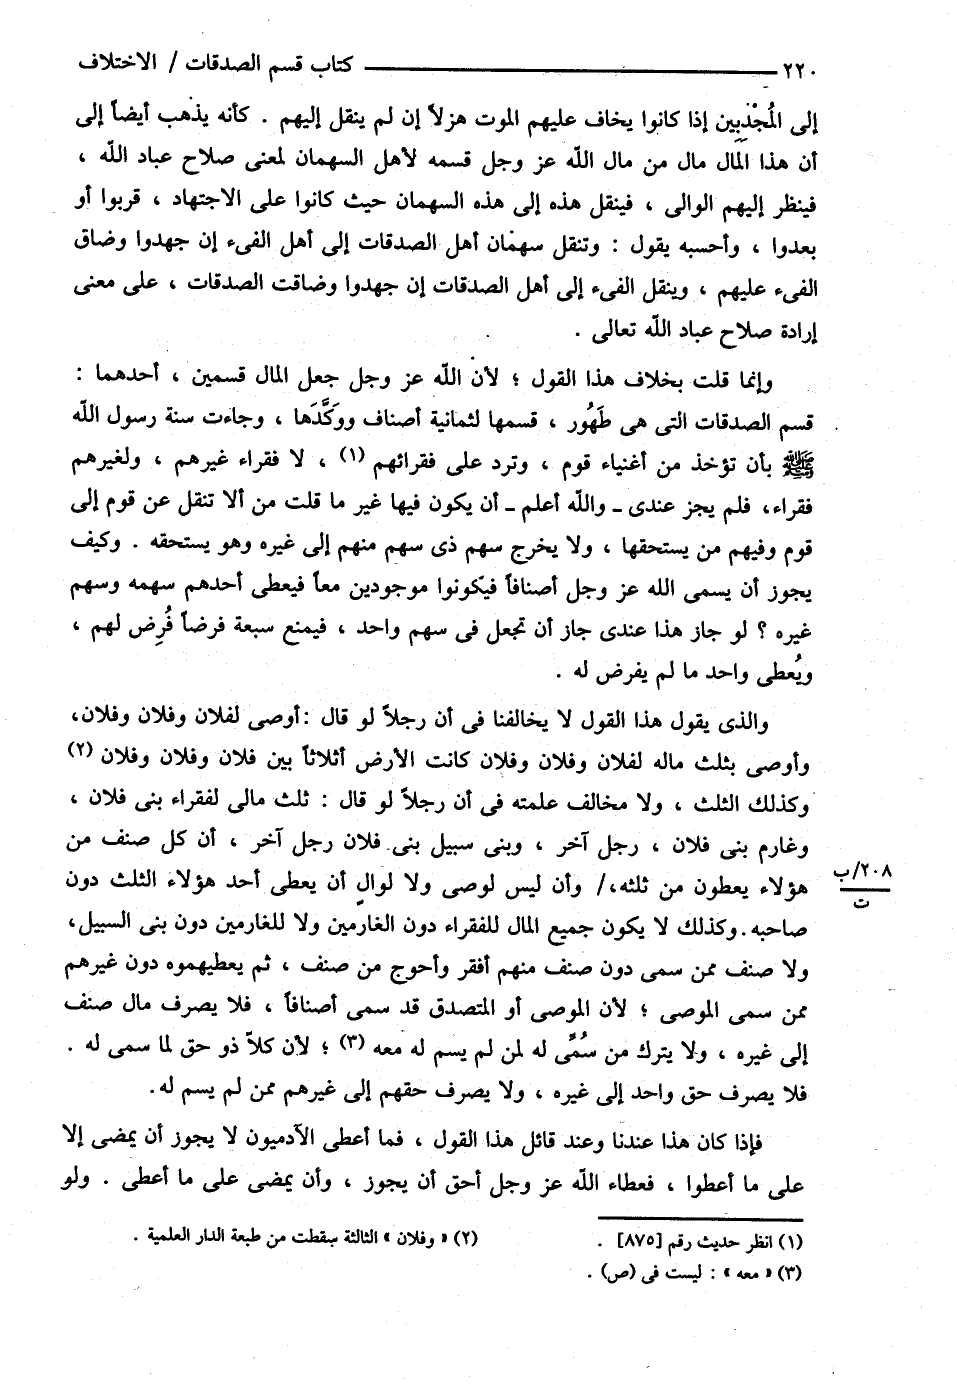 ٢٢٠ ــــــــــــ كتاب قسم الصدقات / الاختلاف
إلى المُجْدِبِين إذا كانوا يخاف عليهم الموت هزلاً إن لم ينقل إليهم . كأنه يذهب أيضاً إلى
أن هذا المال مال من مال الله عز وجل قسمه لأهل السهمان لمعنى صلاح عباد الله ،
فينظر إليهم الوالى ، فينقل هذه إلى هذه السهمان حيث كانوا على الاجتهاد ، قربوا أو
بعدوا ، وأحسبه يقول : وتنقل سهمان أهل الصدقات إلى أهل الفىء إن جهدوا وضاق
الفىء عليهم ، وينقل الفىء إلى أهل الصدقات إن جهدوا وضاقت الصدقات ، على معنى
إرادة صلاح عباد الله تعالى .
وإنما قلت بخلاف هذا القول ؛ لأن الله عز وجل جعل المال قسمين ، أحدهما :
قسم الصدقات التى هى طَهُور ، قسمها لثمانية أصناف ووكَّدَها ، وجاءت سنة رسول الله
ﷺ بأن تؤخذ من أغنياء قوم ، وترد على فقرائهم (١) ، لا فقراء غيرهم ، ولغيرهم
فقراء، فلم يجز عندى ـ والله أعلم ـ أن يكون فيها غير ما قلت من ألا تنقل عن قوم إلى
قوم وفيهم من يستحقها ، ولا يخرج سهم ذى سهم منهم إلى غيره وهو يستحقه . وكيف
يجوز أن يسمى الله عز وجل أصنافاً فيكونوا موجودين معاً فيعطى أحدهم سهمه وسهم
غيره ؟ لو جاز هذا عندى جاز أن تجعل فى سهم واحد ، فيمنع سبعة فرضاً فُرِض لهم ،
ويُعطى واحد ما لم يفرض له .
والذى يقول هذا القول لا يخالفنا فى أن رجلاً لو قال :أوصى لفلان وفلان وفلان،
وأوصى بثلث ماله لفلان وفلان وفلان كانت الأرض أثلاثاً بين فلان وفلان وفلان (٢)
وكذلك الثلث ، ولا مخالف علمته فى أن رجلاً لو قال : ثلث مالى لفقراء بنى فلان ،
وغارم بنى فلان ، رجل آخر ، وبنى سبيل بنى فلان رجل آخر ، أن كل صنف من
هؤلاء يعطون من ثلثه،/ وأن ليس لوصى ولا لوالٍ أن يعطى أحد هؤلاء الثلث دون
٢٠٨/ب
ت
صاحبه.وكذلك لا يكون جميع المال للفقراء دون الغارمين ولا للغارمين دون بنى السبيل،
ولا صنف ممن سمى دون صنف منهم أفقر وأحوج من صنف ، ثم يعطيهموه دون غيرهم
ممن سمى الموصى ؛ لأن الموصى أو المتصدق قد سمى أصنافاً ، فلا يصرف مال صنف
إلى غيره ، ولا يترك من سُمِّى له لمن لم يسم له معه (٣) ؛ لأن كلاً ذو حق لما سمى له .
فلا يصرف حق واحد إلى غيره ، ولا يصرف حقهم إلى غيرهم ممن لم يسم له.
فإذا كان هذا عندنا وعند قائل هذا القول ، فما أعطى الآدميون لا يجوز أن يمضى إلا
على ما أعطوا ، فعطاء الله عز وجل أحق أن يجوز ، وأن يمضى على ما أعطى . ولو
(١) انظر حديث رقم [٨٧٥] .
(٢) « وفلان » الثالثة سقطت من طبعة الدار العلمية .
(٣) « معه » : ليست فى (ص) .